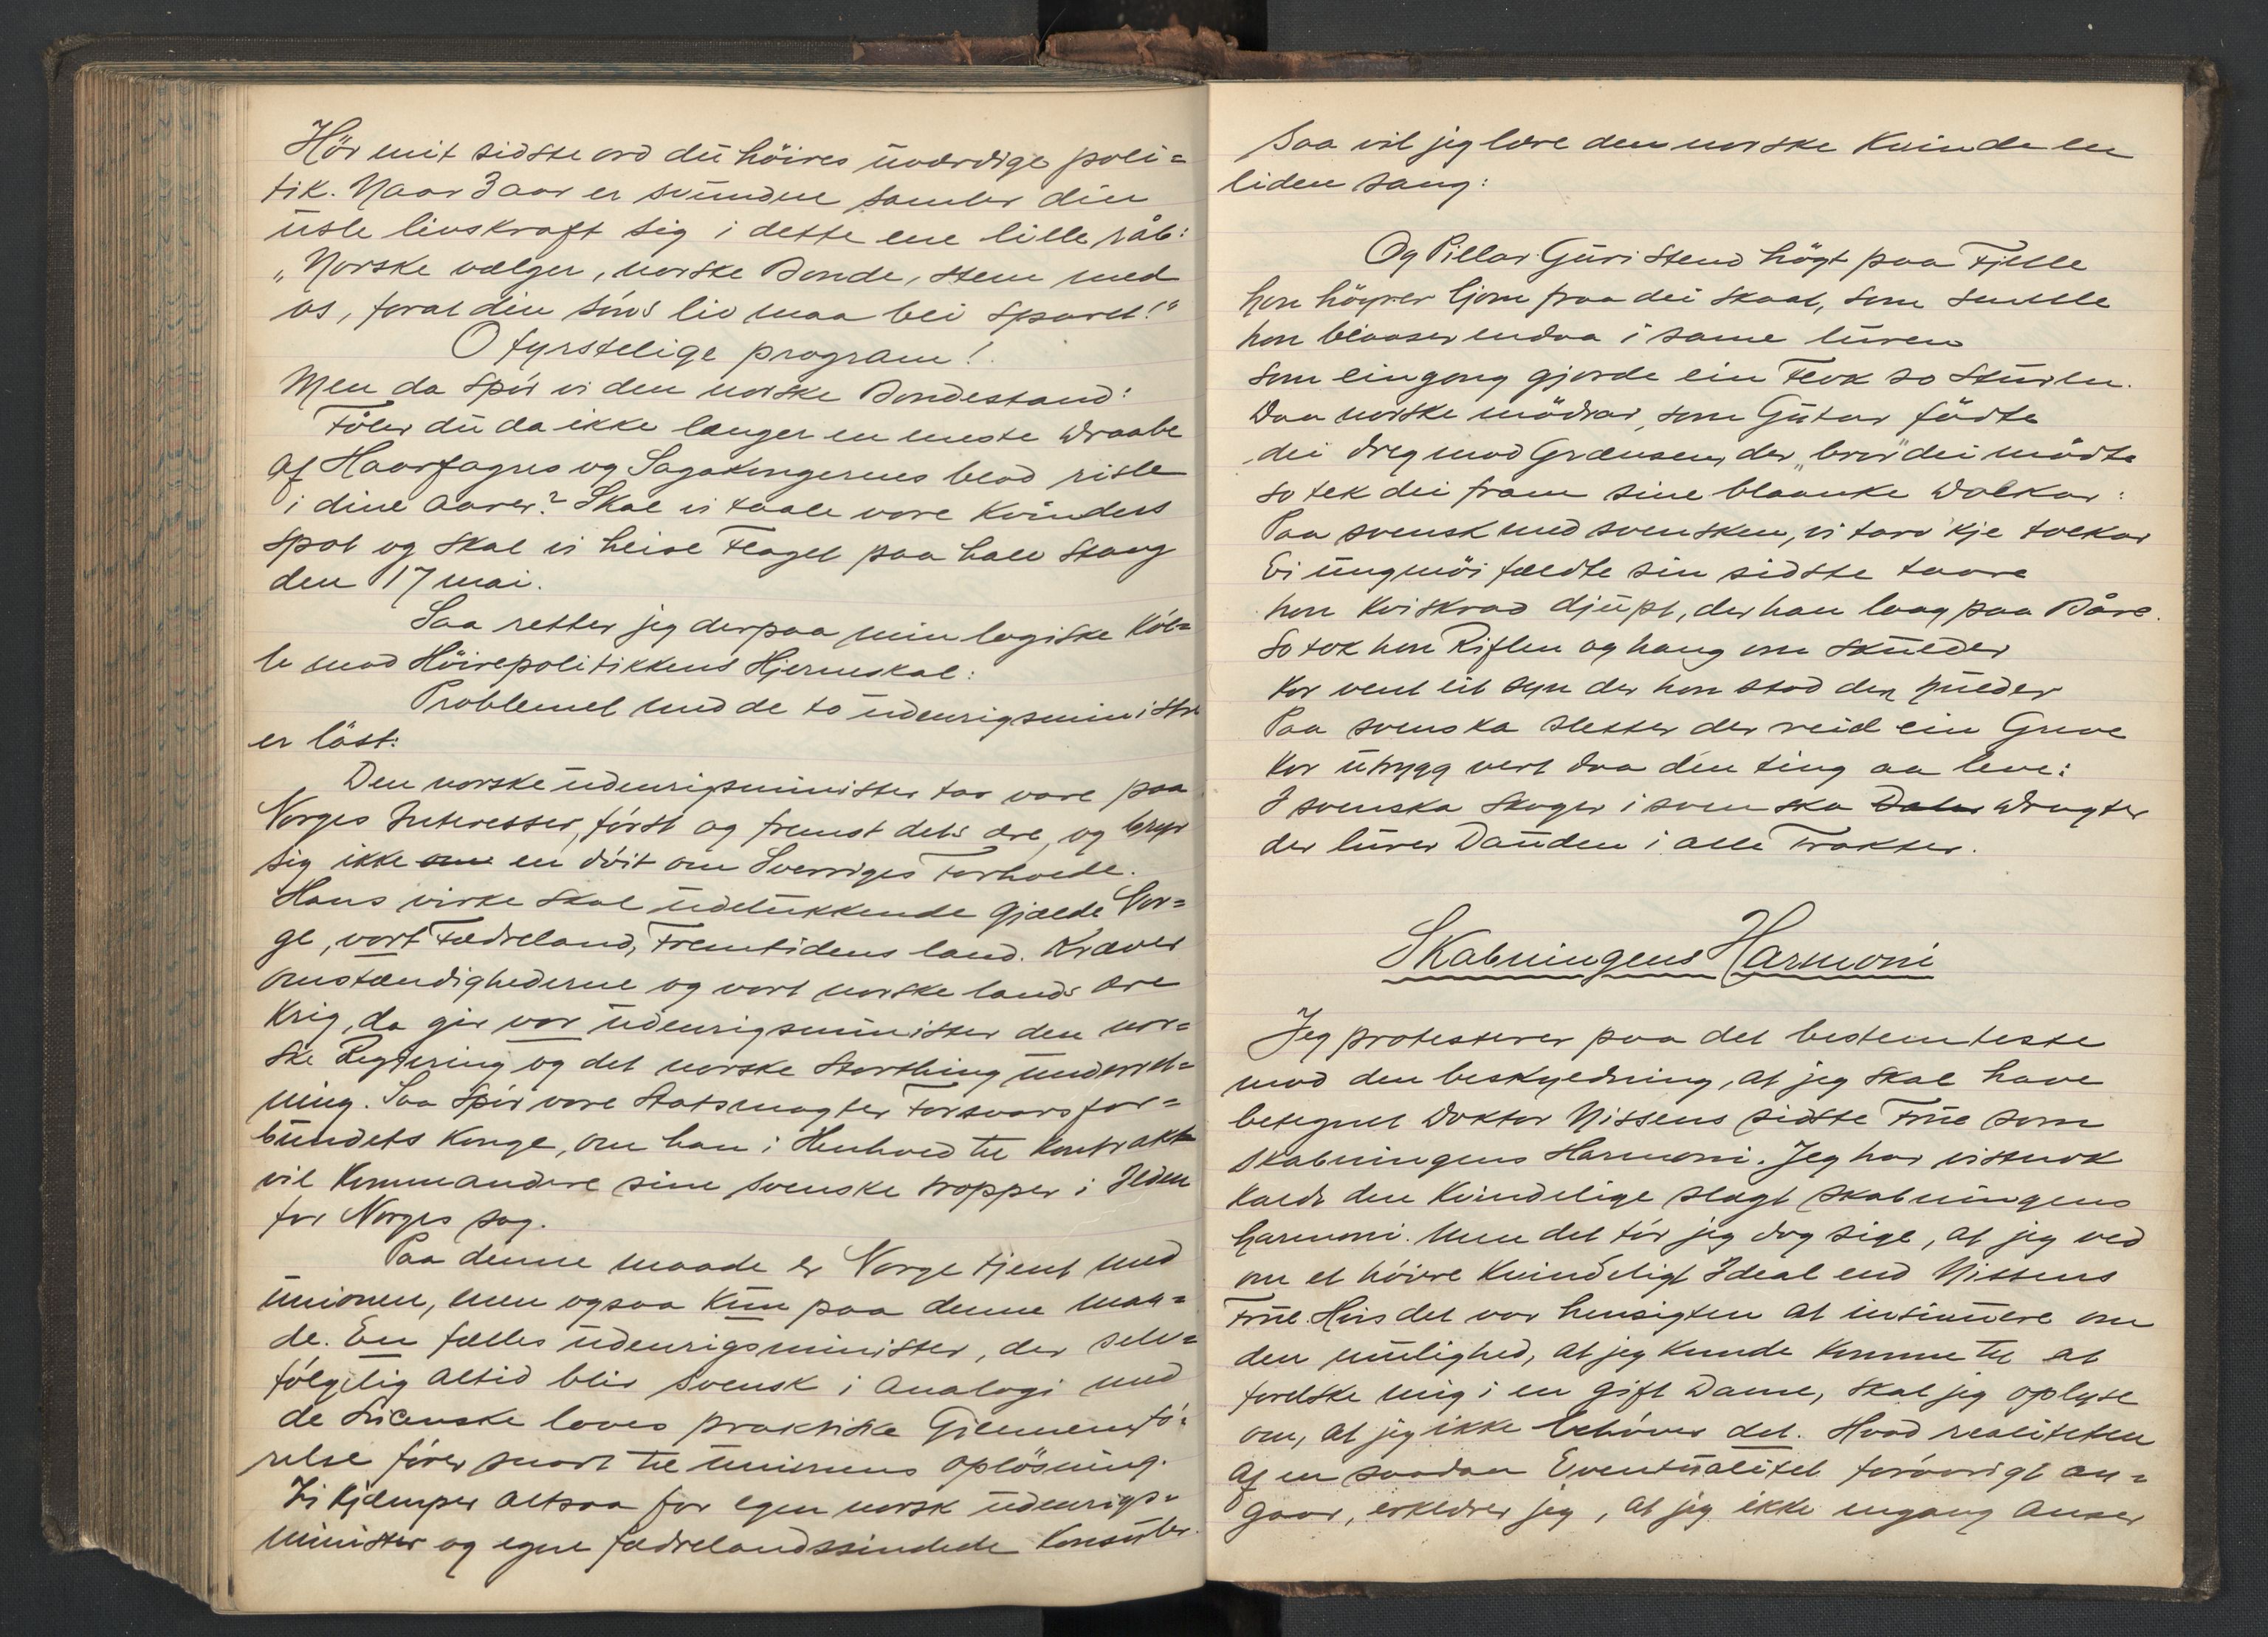 Hör mit sidste ord du höires uværdige poli=
tik. Naar 3 aar er svundne samler din
usle livskraft sig i dette ene lille råb:
„Norske vælger, norske Bonde, stem med
os, forat din söns liv maa bli sparet!"
O fyrstelige program!
Men da spör vi den norske Bondestand:
Föler du da ikke længer en eneste Draabe
af Haarfagres og Sagakongernes blod risle
i dine Aarer? Skal vi taale vore Kvinders
spot og skal vi heise Flaget paa halv Stang
den 17 mai.
Saa retter jeg derpaa min logiske Köl=
le mod Höirepolitikkens Hjerneskal:
Problemet med de to udenrigsministre
er löst:
Den norske udenrigsminister tar vare paa
Norges Interesser, först og fremst dets ære, og bryr
sig ikke om en döit om Sverriges Forhold.
Hans virke skal udelukkende gjælde Nor=
ge, vort Fædreland, Fremtidens land. Kræver
Omstændighederne og vort norske lands ære
Krig, da gir vor udenrigsminister den nor=
ske Regjering og det norske Storthing underret=
ning. Saa spör vore Statsmagter Forsvarsfor=
bundets Konge, om han i Henhold til Kontrakten
vil Kommandere sine svenske tropper i Ilden
for Norges sag.
Paa denne maade er Norge tjent med
unionen, men ogsaa kun paa denne maa=
de. En fælles udenrigsminister, der selv=
fölgelig altid blir svensk i Analogi med
de loves praktiske Gjennemfö=
relse förer snart til unionens oplösning.
Vi kjæmper altsaa for egen norsk udenrigs=
minister og egne fædrelandssindede Konsuler.
Saa vil jeg lære den norske Kvinde en
liden sang:
Og Pillar Guri stend högt paa Fjelle
hon höyrer ljom fraa dei skaat, som smelle
hon blaaser endaa i same luren
som eingong gjorde ein Flok so sturen.
Daa norske mödrar, som Gutar födte
dei dreg mod Grænsen, der „bror" dei mödte
so tek dei fram sine blaanke Dolkar:
Paa svensk med svensken, vi tarv 'kje tolkar
Ei ungmöi fældte sin sidste taare
hon kviskrad djupt, der han laag paa Båre.
So tok hon Riflen og hang om skulder
Kor vent eit syn der hon stod den hulder
Paa svenska sletter der reid ein Greve
Kor utrygg vert daa den ting aa leve:
I svenska skoger i svenska Daler Drogter
der lurer Dauden i alle Trakter.
Skabningens Harmoni
Jeg protesterer paa det bestemteste
mod den beskyldning, at jeg skal have
betegnet Doktor Nissens sidste Frue som
skabningens Harmoni. Jeg har vistnok
kaldt den Kvindelige slægt skabningens
harmoni. Men det tör jeg dog sige, at jeg ved
om et höiere kvindeligt Ideal end Nissens
Frue. Hvis det var hensigten at insinuere om
den mulighed, at jeg kunde komme til at
forelske mig i en gift Dame, skal jeg oplyse
om, at jeg ikke behöver det. Hvad realiteten
af en saadan Eventualitet forövrigt an=
gaar, erklærer jeg, at jeg ikke engang anser